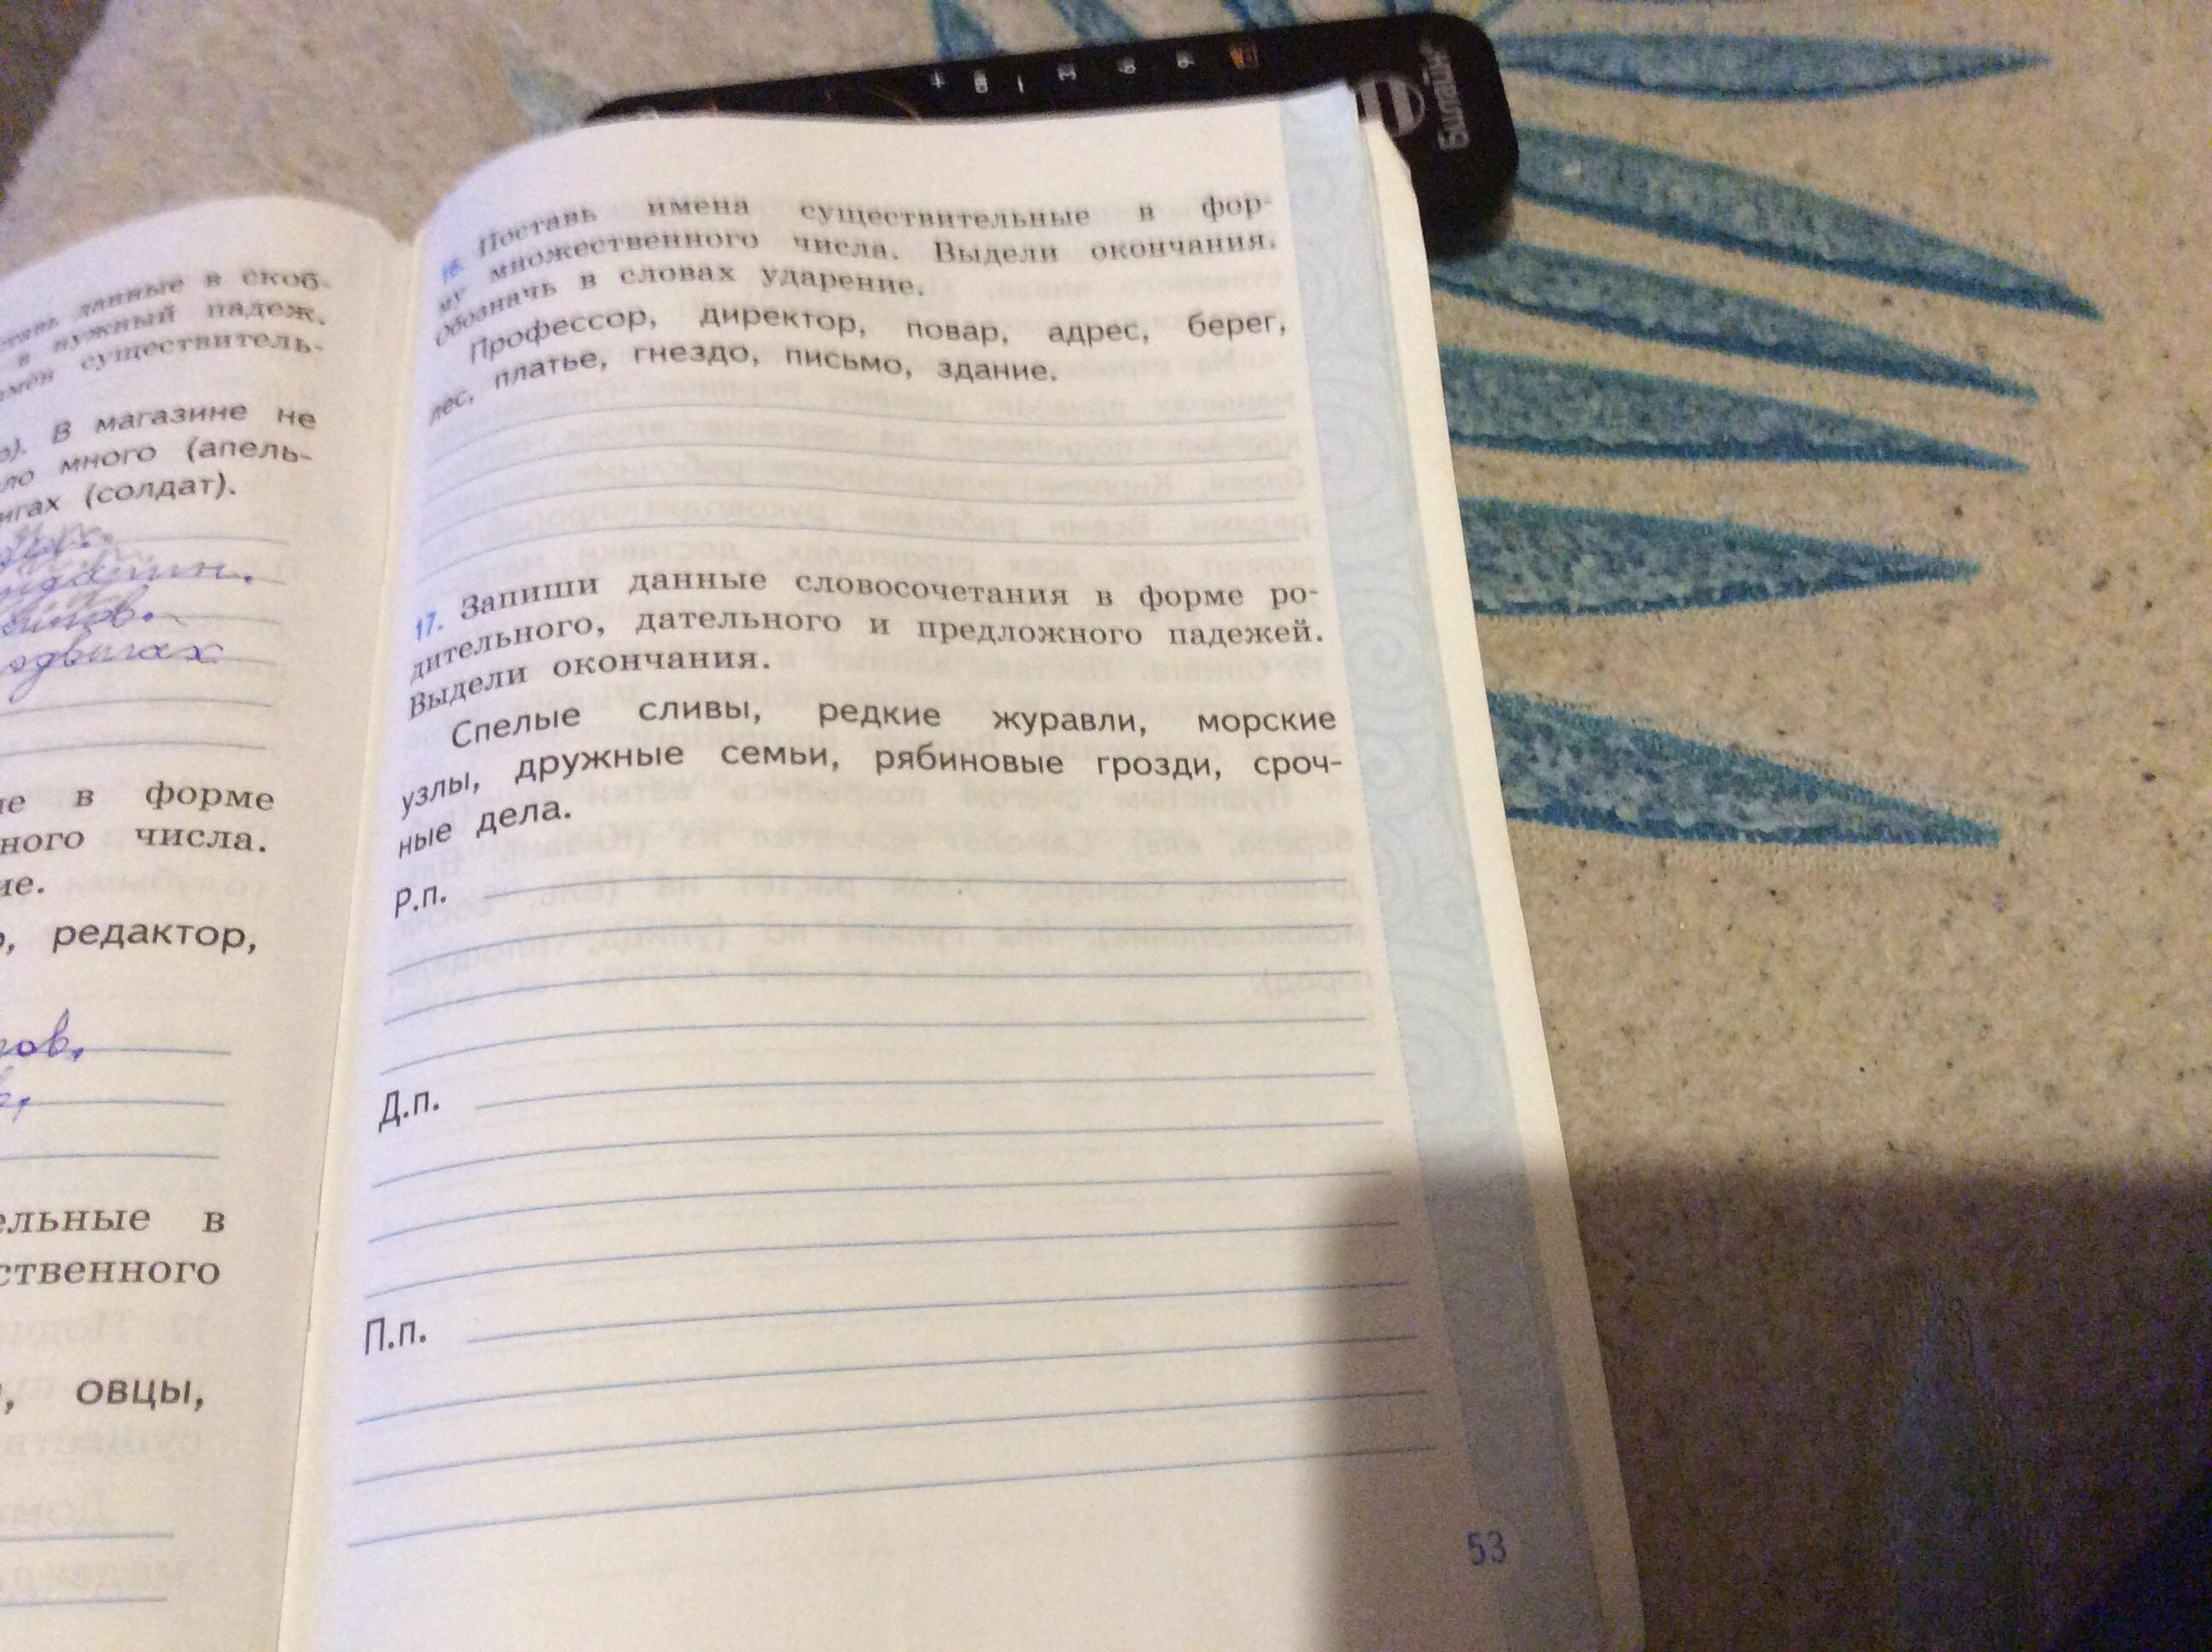 данные в скоб-
в нужный падеж.
существитель-
В магазине не
много (апель-
(солдат).
в форме
числа.
редактор,
в
овцы,
16. Поставь имена существительные в фор-
му множественного числа. Выдели окончания.
Обозначь в словах ударение.
Профессор, директор, повар, адрес, берег,
лес, платье, гнездо, письмо, здание.
17. Запиши данные словосочетания в форме ро-
дительного, дательного и предложного падежей.
Выдели окончания.
Спелые сливы, редкие журавли, морские
узлы, дружные семьи, рябиновые грозди, сроч-
ные дела.
Р.п.
Д.п.
П.п.
53
Билайн